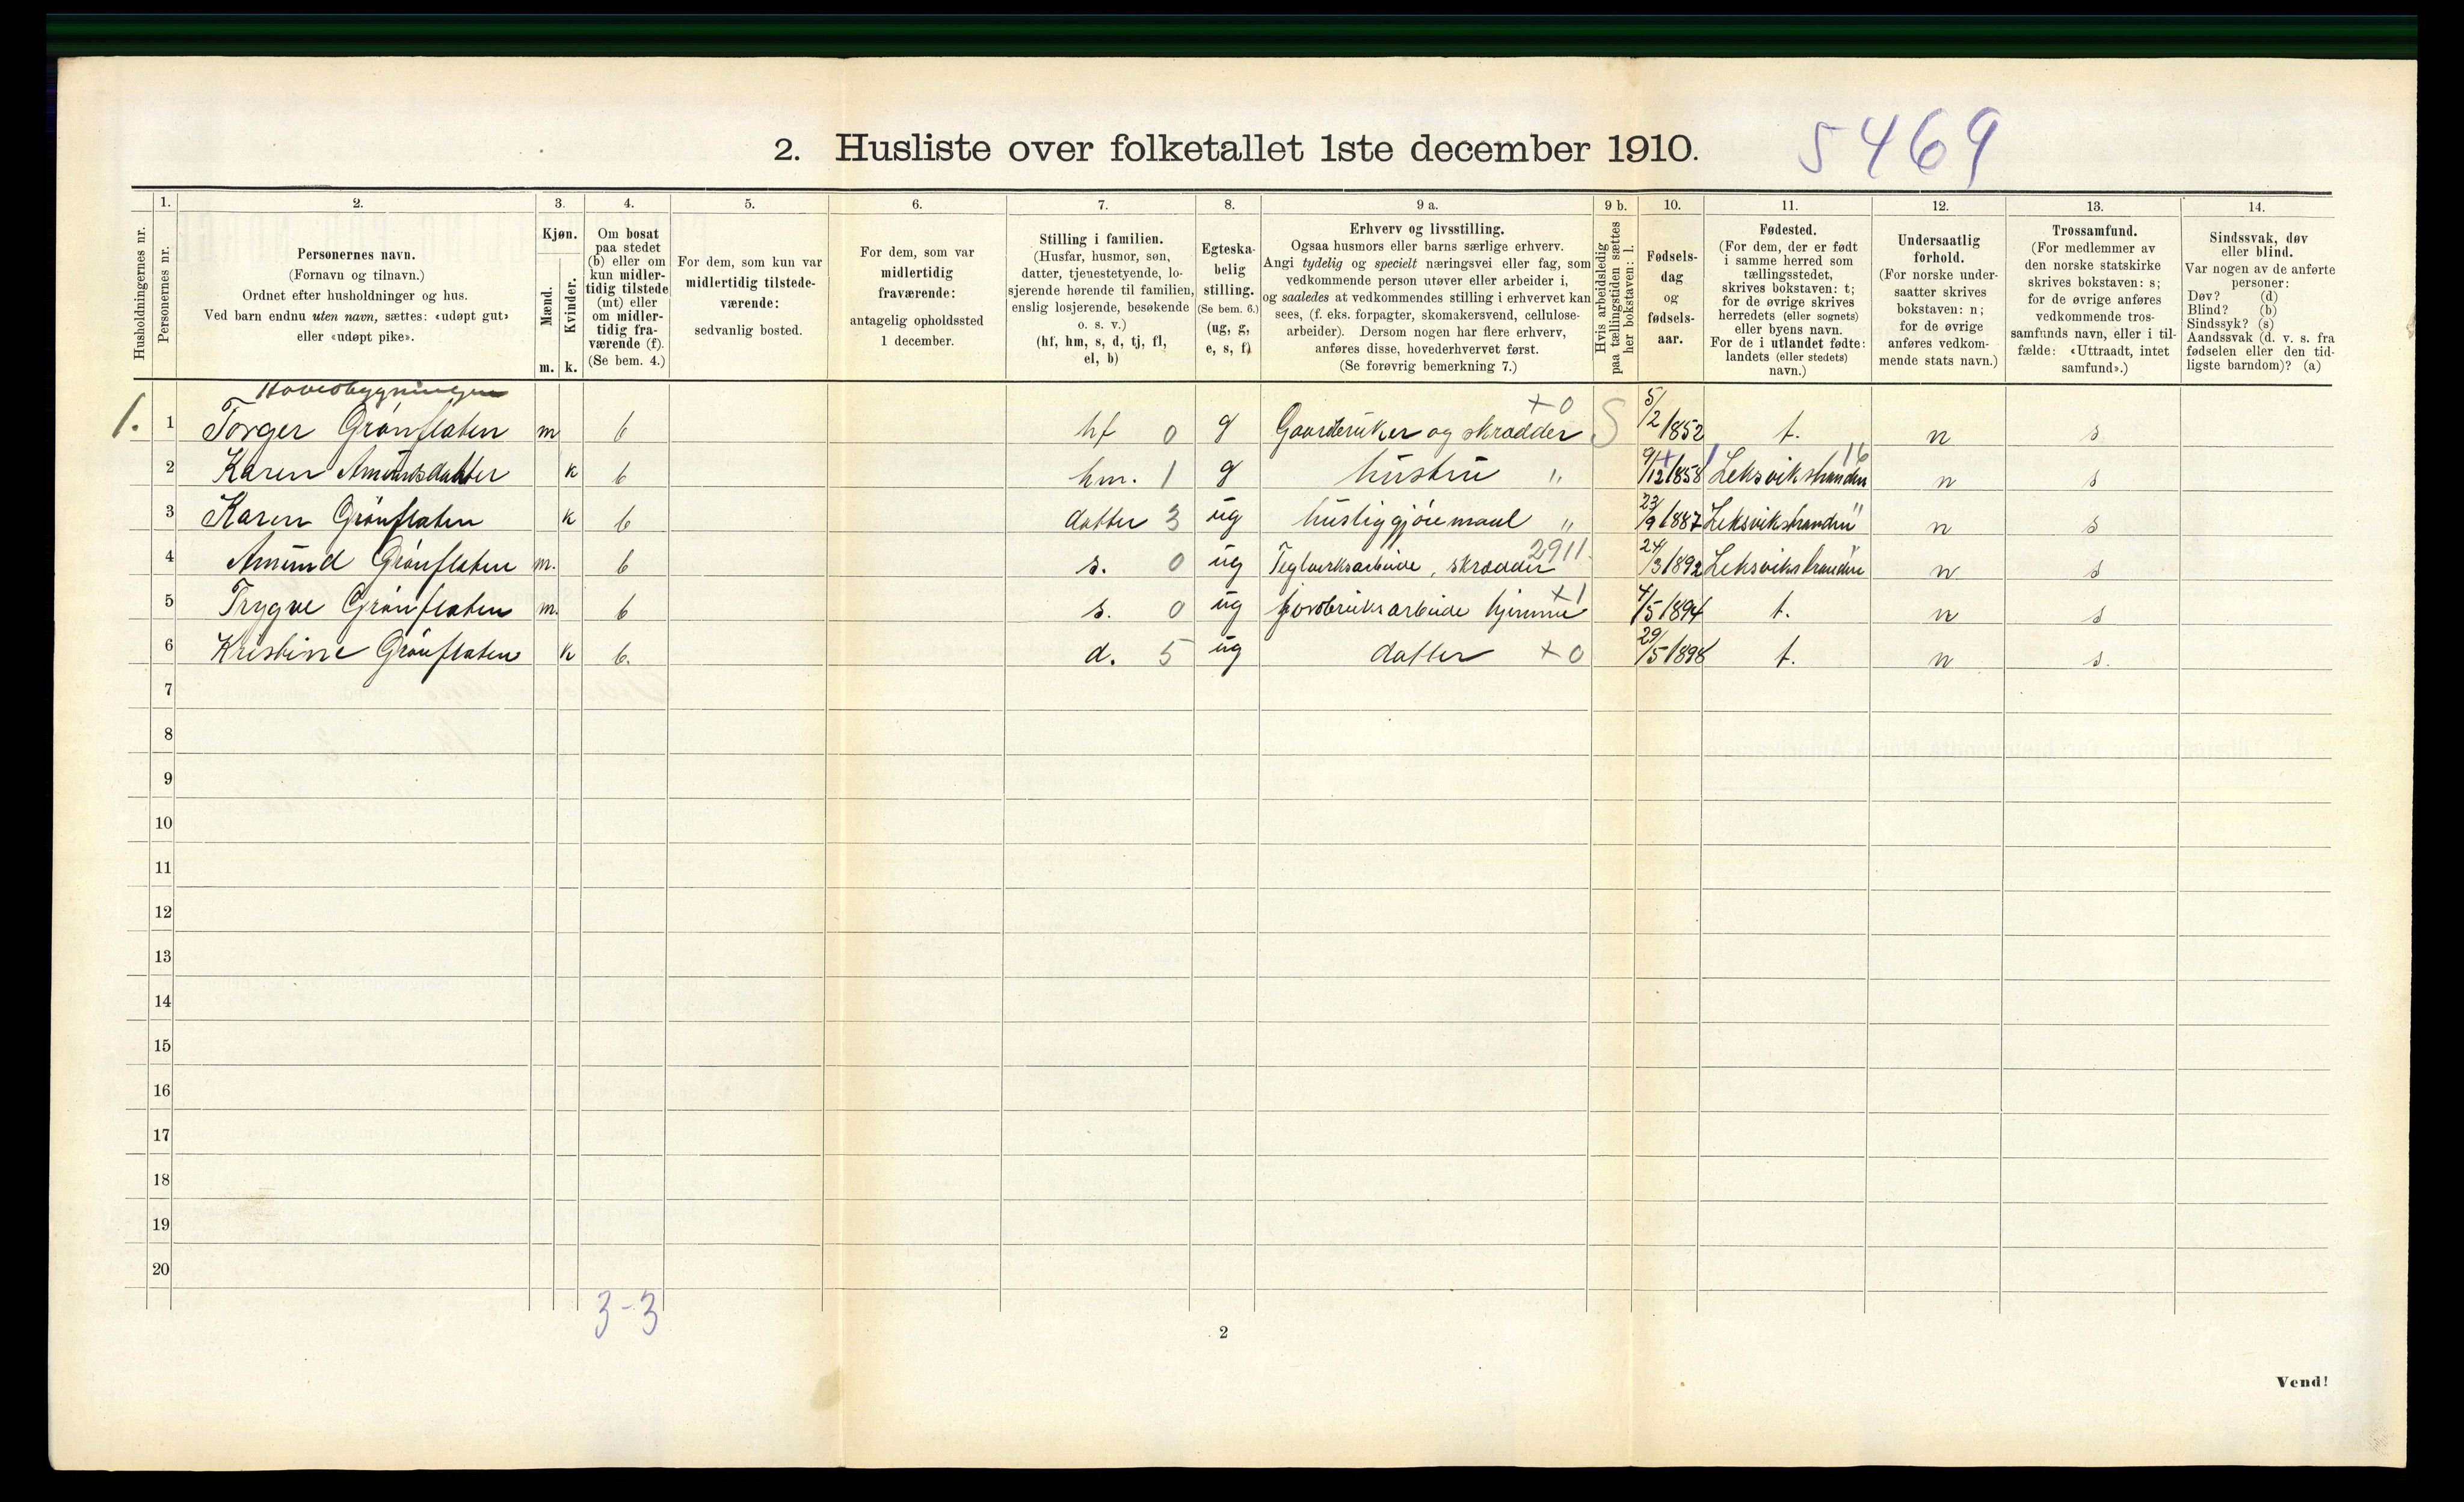 2. Husliste over folketallet 1ste december 1910.
5469
Husholdningernes nr.
1.
Personernes nr.
2.
Personernes navn.
(Fornavn og tilnavn.)
Ordnet efter husholdninger og hus.
Ved barn endnu uten navn, sættes: «udøpt gut»
eller «udøpt pike».
3.
Kjøn.
Mænd.
Kvinder.
m.
k.
4.
Om bosat
paa stedet
(b) eller om
kun midler-
tidig tilstede
(mt) eller
om midler-
tidig fra-
værende (f).
(Se bem. 4.)
5.
For dem, som kun var
midlertidig tilstede-
værende:
sedvanlig bosted.
6.
For dem, som var
midlertidig
fraværende:
antagelig opholdssted
1 december.
7.
Stilling i familien.
(Husfar, husmor, søn,
datter, tjenestetyende, lo-
sjerende hørende til familien,
enslig losjerende, besøkende
o. s. v.)
(hf, hm, s, d, tj, fl,
el, b)
8.
Egteska-
belig
stilling.
(Se bem. 6.)
(ug, g,
e, s, f)
9 a.
Erhverv og livsstilling.
Ogsaa husmors eller barns særlige erhverv.
Angi tydelig og specielt næringsvei eller fag, som
vedkommende person utøver eller arbeider i,
og saaledes at vedkommendes stilling i erhvervet kan
sees, (f. eks. forpagter, skomakersvend, cellulose-
arbeider). Dersom nogen har flere erhverv,
anføres disse, hovederhvervet først.
(Se forøvrig bemerkning 7.)
9 b.
Hvis arbeidsledig
paa tællingstiden sættes
her bokstaven: l.
10.
Fødsels-
dag
og
fødsels-
aar.
11.
Fødested.
(For dem, der er født
i samme herred som
tællingsstedet,
skrives bokstaven: t;
for de øvrige skrives
herredets (eller sognets)
eller byens navn.
For de i utlandet fødte:
landets (eller stedets)
navn.)
12.
Undersaatlig
forhold.
(For norske under-
saatter skrives
bokstaven: n;
for de øvrige
anføres vedkom-
mende stats navn.)
13.
Trossamfund.
(For medlemmer av
den norske statskirke
skrives bokstaven: s;
for de øvrige anføres
vedkommende tros-
samfunds navn, eller i til-
fælde: «Uttraadt, intet
samfund».)
14.
Sindssvak, døv
eller blind.
Var nogen av de anførte
personer:
Døv? (d)
Blind? (b)
Sindssyk? (s)
Aandssvak (d. v. s. fra
fødselen eller den tid-
ligste barndom)? (a)
Hovedbygningen
1. 1 Torger Grønflaten m b hf 0 g Gaardbruker og skrædder +0 S 5/2 1852 t. n s
2 Karen Amundsdatter k b hm. 1 g hustru " 9/12 1858 Leksvikstranden 16 n s
3 Karen Grønflaten k b datter 3 ug husliggjøremaal " 23/9 1887 Leksvikstranden " n s
4 Amund Grønflaten m. b s. 0 ug Teglverksarbeide, skrædder 2911. 24/3 1892 Leksvikstranden n s
5 Trygve Grønflaten m. b s. 0 ug jordbruksarbeide hjemme +1 4/5 1894 t. n s
6 Kristine Grønflaten k b. d. 5 ug datter +0 29/5 1898 t. n s.
7
8
9
10
11
12
13
14
15
16
17
18
19
20
3-3
2
Vend!